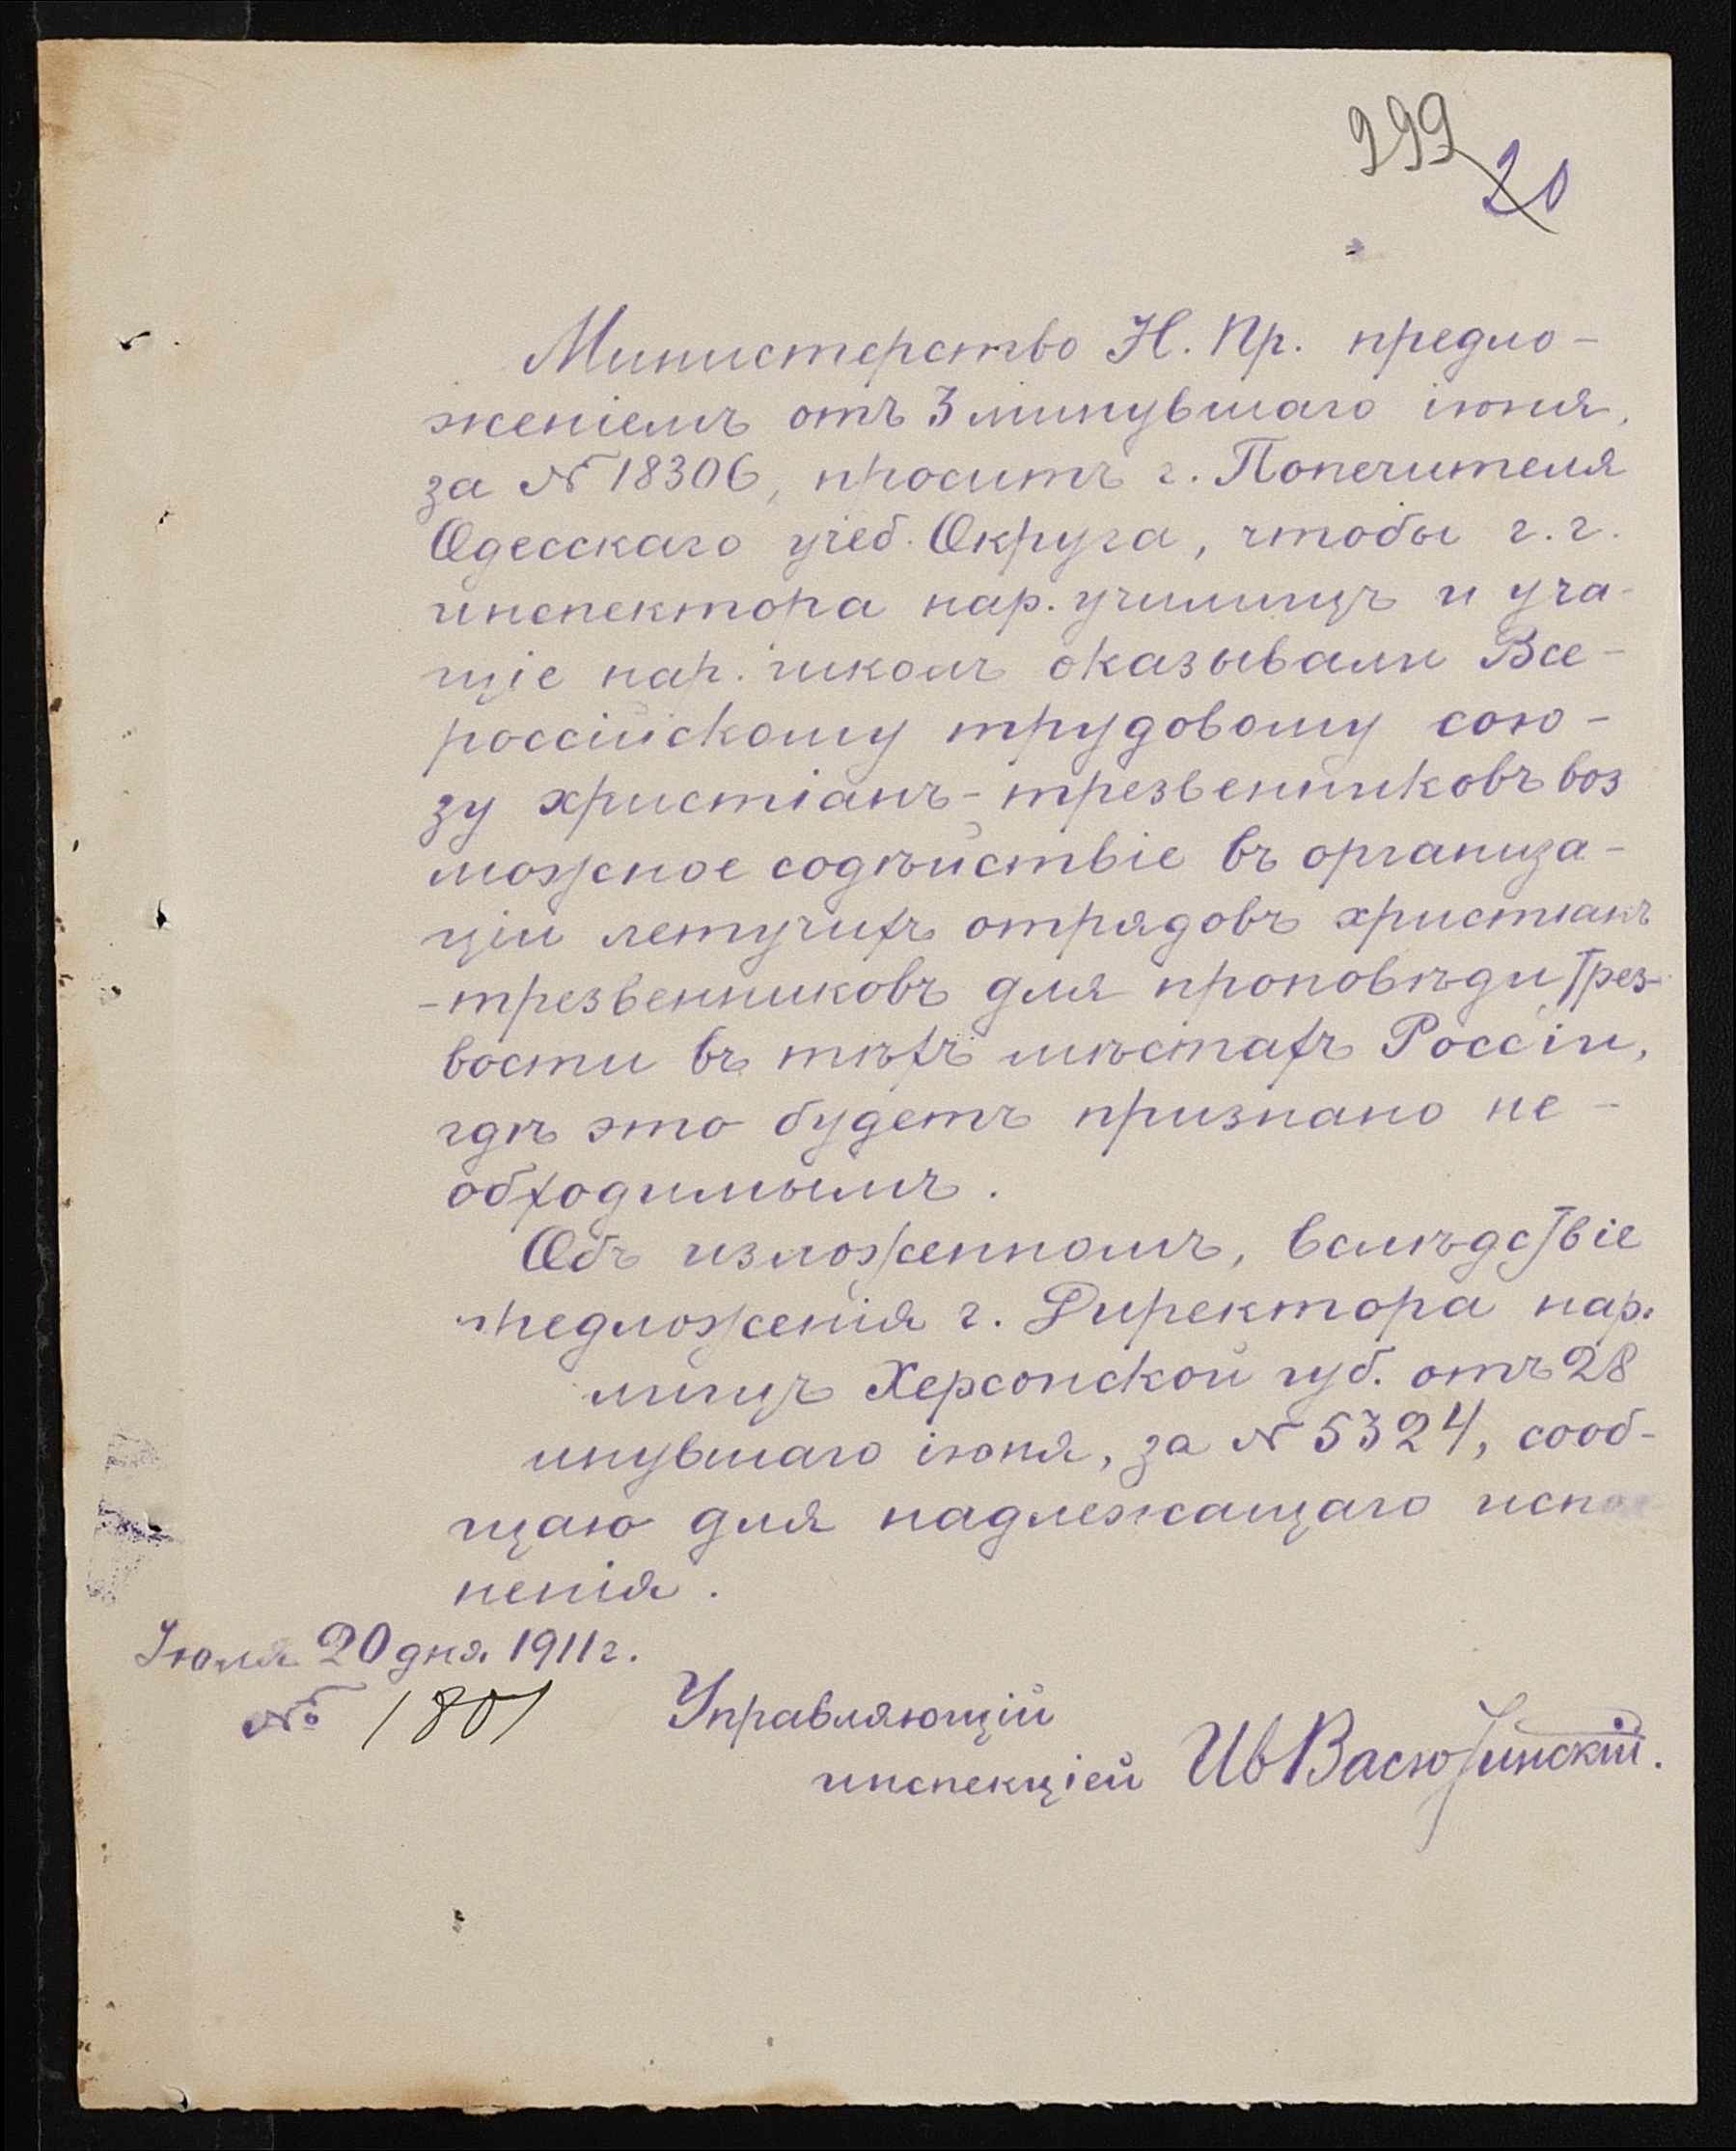 299
20
Министерство Н. Пр. предло-
женіемъ отъ 3 минувшаго іюня,
за № 18306, проситъ г. Попечителя
Одесскаго учеб. Округа, чтобы г.г.
инспектора нар. училищъ и уча-
щіе нар. школъ оказывали Все-
россійскому трудовому сою-
зу христіанъ-трезвенниковъ воз
можное содѣйствіе въ организа-
ціи летучихъ отрядовъ христіанъ
-трезвенниковъ для проповѣди трез-
вости въ тѣхъ мѣстахъ Россіи,
гдѣ это будетъ признано не-
обходимымъ.
Объ изложенномъ, вслѣдствіе
предложенія г. Директора нар.
лищъ Херсонской губ. отъ 28
инувшаго іюня, за № 5324, сооб-
щаю для надлежащаго испол
ненія.
Іюля 20 дня 1911 г.
№ 1801
Управляющій
инспекціей Ив Васютинскій.